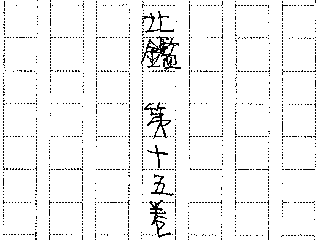 北鑑 第十五巻